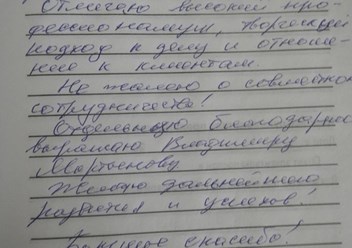 Отмечаю высокий про-
фессионализм, творческий
подход к делу и отноше-
ние к клиентам.
Не жалею о совместном
сотрудничестве!
Отдельную благодарность
выражаю Владимиру
Мартынову
Желаю дальнейшего
развития и успехов!
Большое спасибо!